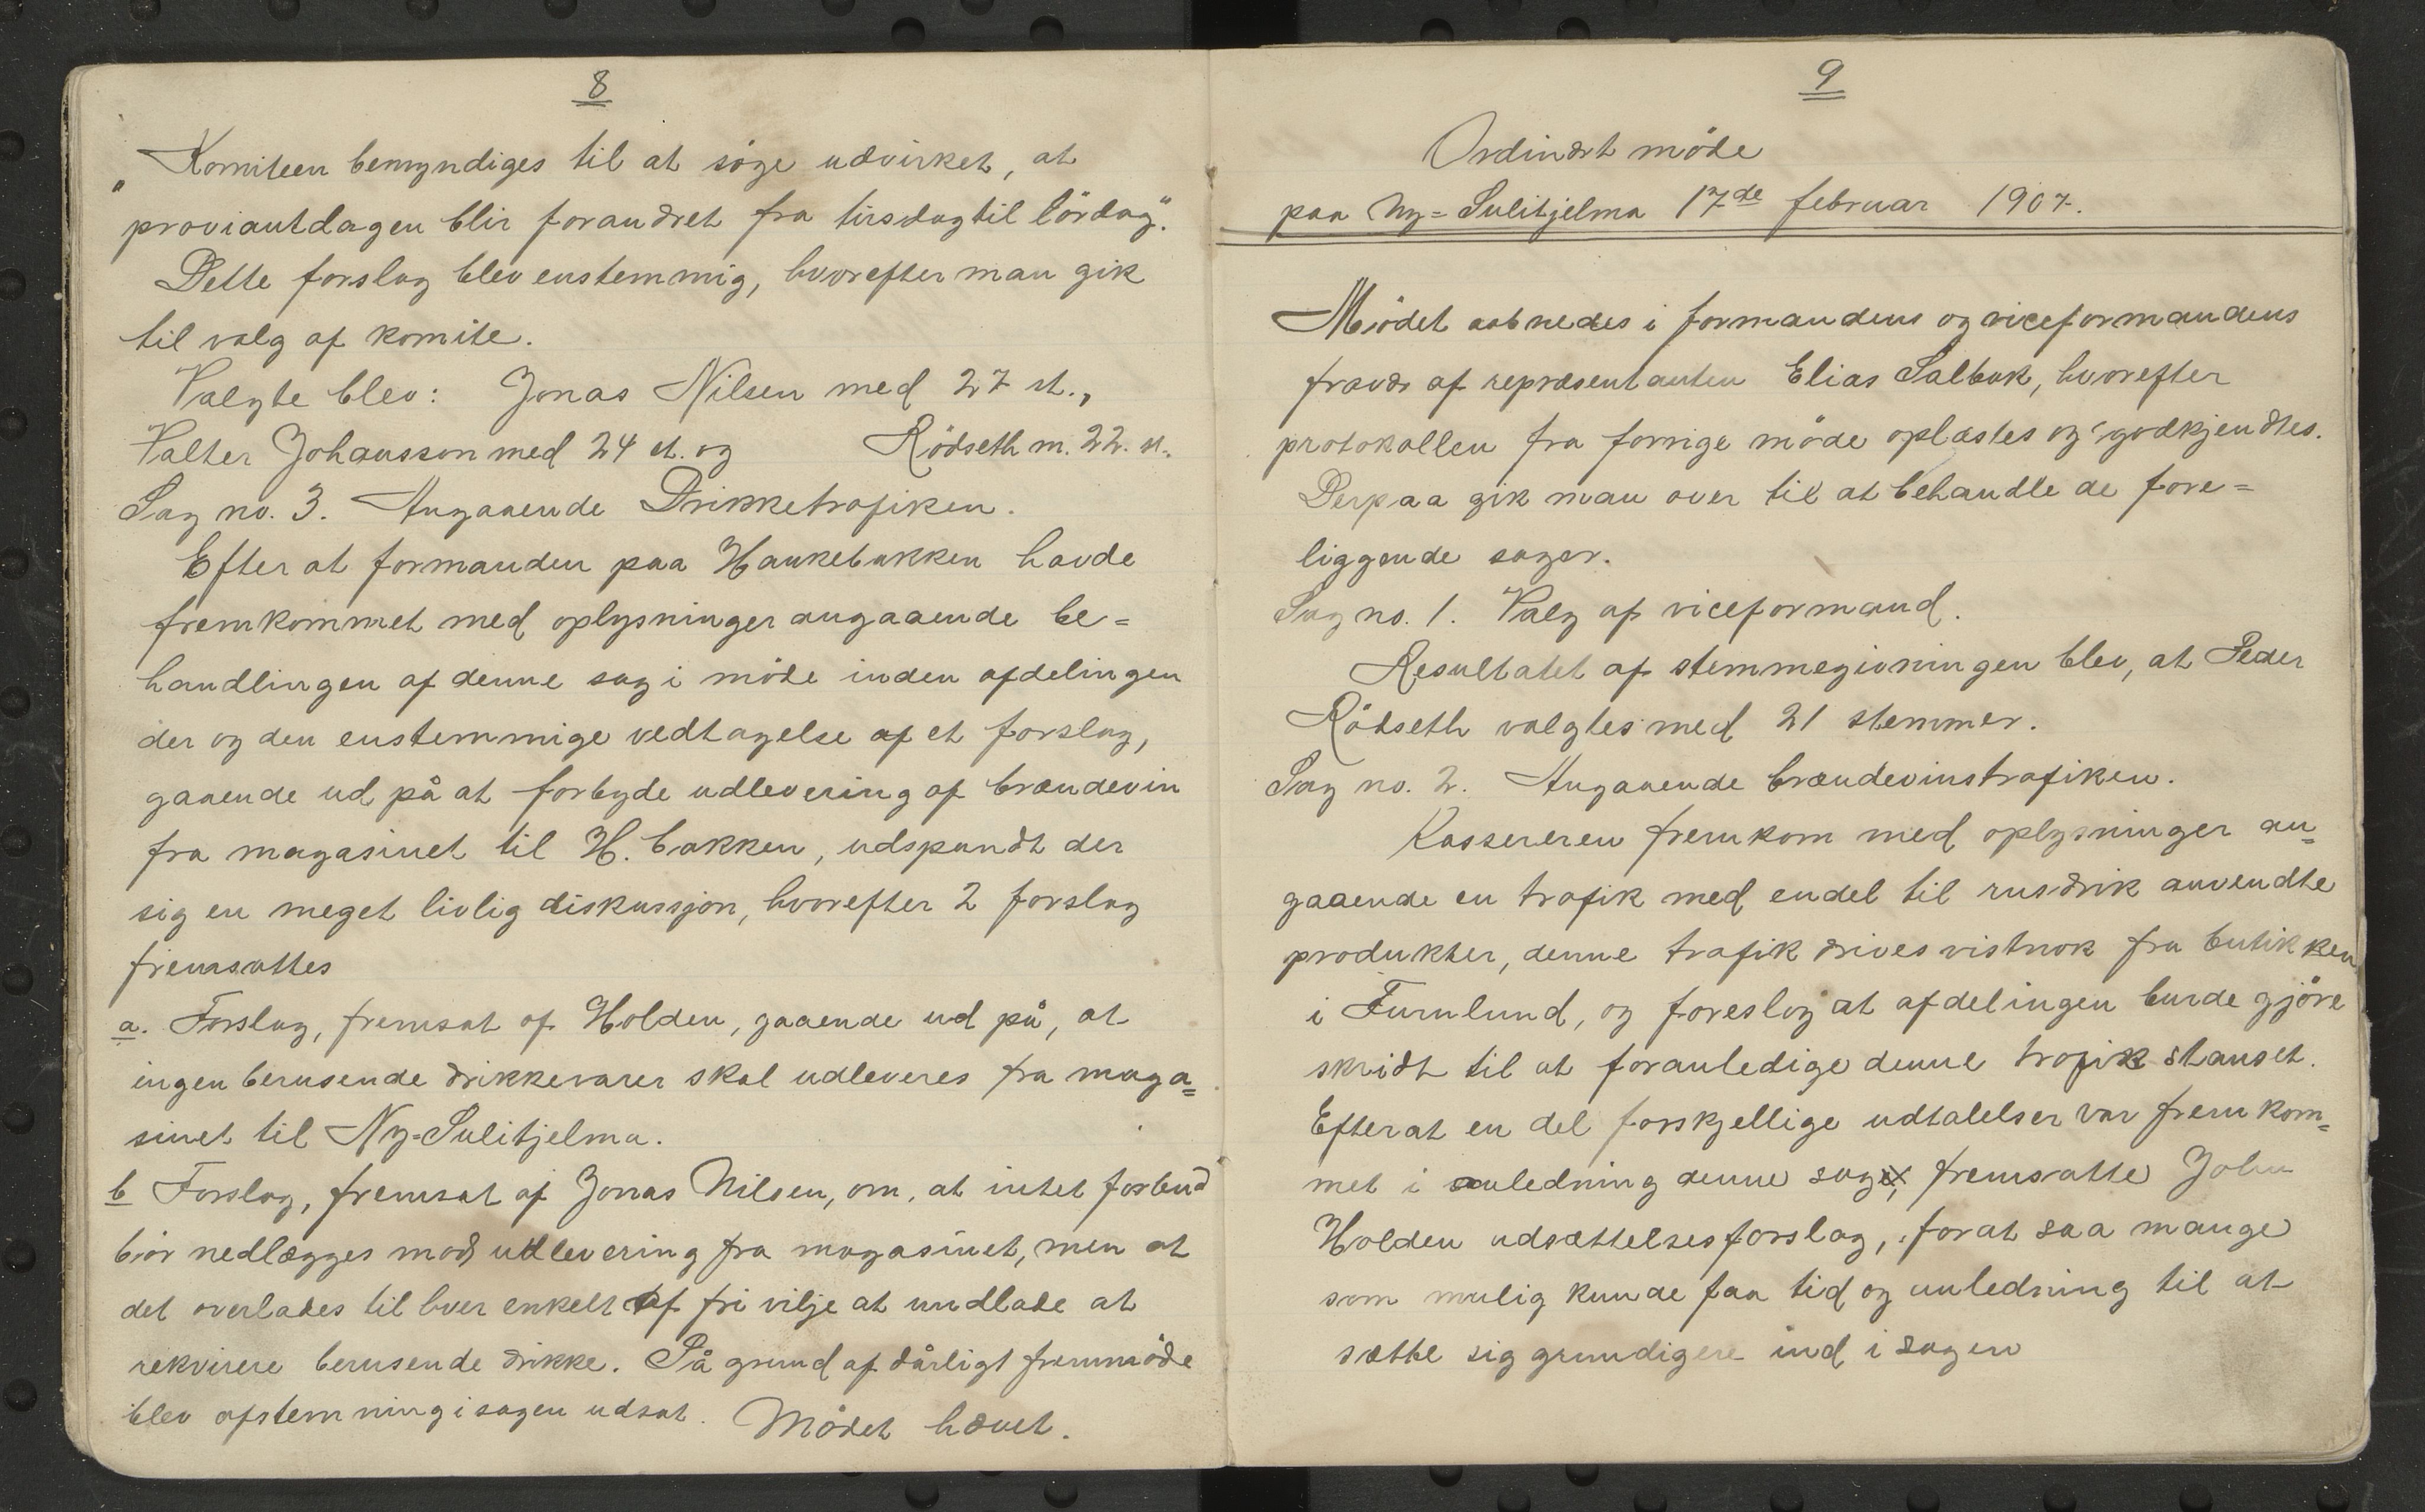 8
„Komiteen bemyndiges til at söge udvirket, at
proviantdagen blir forandret fra tirsdag til lördag".
Dette forslag blev enstemmig, hvorefter man gik
til valg af komite.
Valgte blev: Jonas Nilsen med 27 st.,
Valter Johansson med 24 st. og Rödseth m. 22. st.
Sag no. 3. Angaaende Drikketrafiken.
Efter at formanden paa Hankebakken havde
fremkommet med oplysninger angaaende be=
handlingen af denne sag i möde inden afdelingen
der og den enstemmige vedtagelse af et forslag,
gaaende ud på at forbyde udlevering af brændevin
fra magasinet til H. bakken, udspandt der
sig en meget livlig diskussjon, hvorefter 2 forslag
fremsattes
a. Forslag, fremsat af Holden, gaaende ud på, at
ingen berusende drikkevarer skal udleveres fra maga=
sinet til Ny-Sulitjelma.
b Forslag, fremsat af Jonas Nilsen, om, at intet forbud
bör nedlægges mod udlevering fra magasinet, men at
det overlades til hver enkelt af fri vilje at undlade at
rekvirere berusende drikke. På grund af dårligt fremmöde
blev afstemning i sagen udsat. Mödet hævet.
9
Ordinært möde
paa Ny=Sulitjelma 17de februar 1907.
Mödet aabnedes i formandens og viceformandens
fravær af repræsentanten Elias Salbuk, hvorefter
protokollen fra forrige möde oplæstes og godkjendtes.
Derpaa gik man over til at behandle de fore=
liggende sager.
Sag no. 1. Valg af viceformand.
Resultatet af stemmegivningen blev, at Peder
Rödseth valgtes med 21 stemmer.
Sag no. 2. Angaaende brændevinstrafiken.
Kassereren fremkom med oplysninger an=
gaaende en trafik med endel til rusdrik anvendte
produkter, denne trafik drives vistnok fra butikken
i Furulund, og foreslog at afdelingen burde gjöre
skridt til at foranledige denne trafik stanset.
Efterat en del forskjellige udtalelser var fremkom=
met i anledning denne sag, fremsatte John
Holden udsættelsesforslag, forat saa mange
som mulig kunde faa tid og anledning til at
sætte sig grundigere ind i sagen